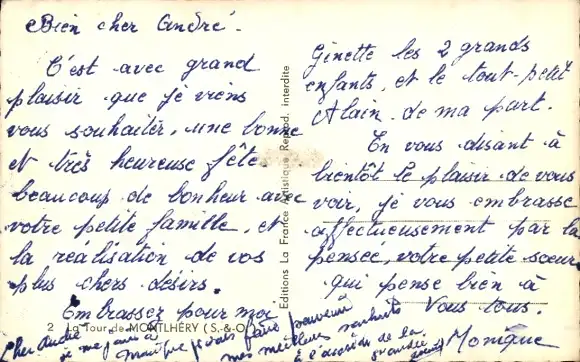 Bien cher André.
C'est avec grand
plaisir que je viens
vous souhaiter, une bonne
et très heureuse fête.
beaucoup de bonheur avec
votre petite famille, et
la réalisation de vos
plus chers désirs.
Embrassez pour moi
Ginette les 2 grands
enfants, et le tout-petit
Alain de ma part.
En vous disant à
bientôt le plaisir de vous
voir, je vous embrasse
affectueusement par la
pensée, votre petite soeur
qui pense bien à
Vous tous.
Monique
Editions La France Artistique Reprod. Interdite
2 La Tour de MONTLHÉRY (S.-&-O.)
Cher André
je me joins à
Monique
parvenir
mes meilleurs souhaits
à l'occasion de la